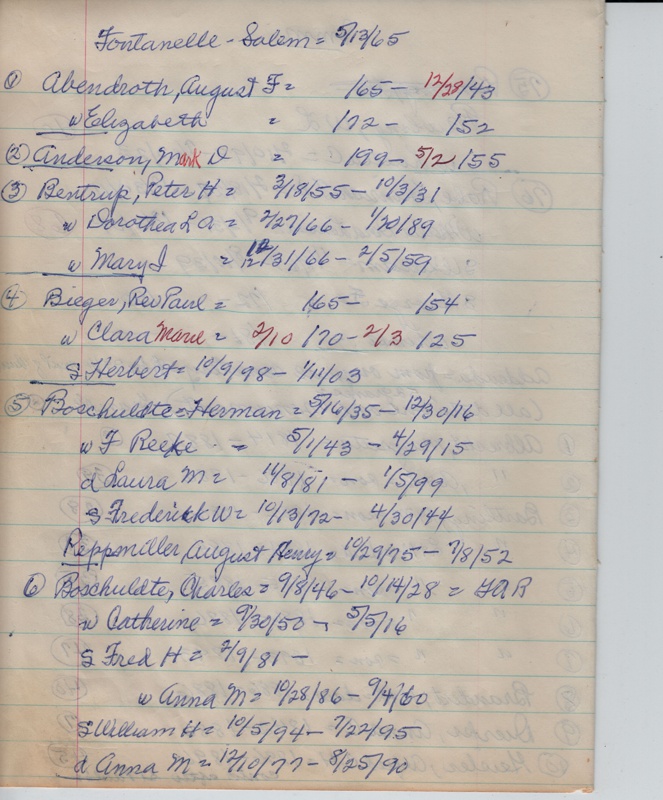 Fontanelle - Salem = 5/13/65
① Abendroth, August F = 165 - 12/28/43
w Elizabeth = 172 - 152
② Anderson, Mark D = 199 - 5/2/55
③ Bentrup, Peter H = 3/18/55 - 10/3/31
w Dorothea L A = 2/27/66 - 1/20/89
w Mary I = 12/31/66 - 2/5/59
④ Bieger, Rev Paul = 165 - 154
w Clara Marie = 2/10/70 - 2/3/25
S Herbert = 10/9/98 - 1/11/03
⑤ Boschuldte = Herman = 5/16/35 - 12/30/16
w F Reeke = 5/1/43 - 4/29/15
d Laura M = 11/8/81 - 1/5/99
S Frederick W = 10/13/72 - 4/30/44
Reppmiller, August Henry = 10/29/75 - 7/8/52
⑥ Boschuldte, Charles = 9/8/46 - 10/14/28 = GAR
w Catherine = 9/30/50 - 5/5/16
S Fred H = 2/9/81 -
w Anna M = 10/28/86 - 9/4/60
S William H = 10/5/94 - 7/22/95
d Anna M = 12/10/77 - 8/25/90